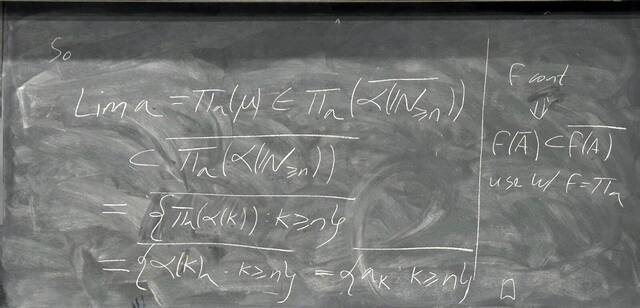 So
Lim a = πₐ(μ) ∈ πₐ(\overline{α(ℕ≥n)})
⊂ \overline{πₐ(α(ℕ≥n))}
= \overline{{πₐ(α(k)) : k≥n}}
= \overline{{α(k)ₐ : k≥n}} = \overline{{aₖ : k≥n}}
□
F cont
⇓
F(\overline{A}) ⊂ \overline{F(A)}
use w/ F=πₐ